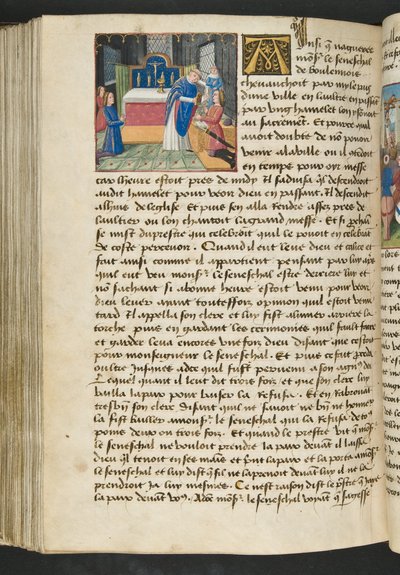 Ainsi q̃ nagueres
monsr̃ le seneschal
de boulennois
cheuauchoit par my le pays
dune ville en laultre en passãt
par vng hamelet lon y sonnoit
au sacrement. Et pource quil
auoit doubte de nõ pouoir
venir a la ville ou il tiroit
en temps pour oyr messe
car lheure estoit pres de midy Il saduisa ql̃ descendroit
audit hamelet pour veoir dieu en passant. Il descendit
alhuis de leglise Et puis sen alla rendre assez pres de
laultier ou lon chantoit la grand messe. Et si prochain
se mist du prestre qui celebroit quil le pouoit en celebrãt
de coste perceuoir. Quand il eut leue dieu et calice et
fait ainsi comme il appartient pensant par luy apres
quil eut veu monsr̃ le seneschal estre derriere luy et
nõ sachant si a bonne heure estoit venu pour veoir
dieu leuer ayant toutesfois opinion quil estoit venu
tard Il appella son clerc et luy fist alumer arriere la
torche puis en gardant les cerimonies quil fault faire
et garder leua encores vne fois dieu disant que cestoit
pour monseigneur le seneschal. Et puis ce fait proceda
oultre iusques adce quil fust peruenu a son agnus dei
Lequel quant il leut dit trois fois et que son clerc luy
bailla la paix pour baiser la refusa. Et en rabrouãt
tresbiẽ son clerc disant que ne sauoit ne biẽ ne honneur
la fist bailler a monsr̃ le seneschal qui la refusa de to9
poins deux ou trois fois. Et quand le prestre vit q̃ monsr̃
le seneschal ne vouloit prendre la paix deuant il laissa
dieu ql̃ tenoit en ses mains et print la paix et la porta a monsr̃
le seneschal et luy dist q̃ sil ne la prenoit deuãt luy il ne la
prendroit ja luy mesmes. Ce nest raison dist le p̃stre q̃ jaye
la paix deuãt vo9. Adõc monsr̃ le seneschal voyãt q̃ sagesse